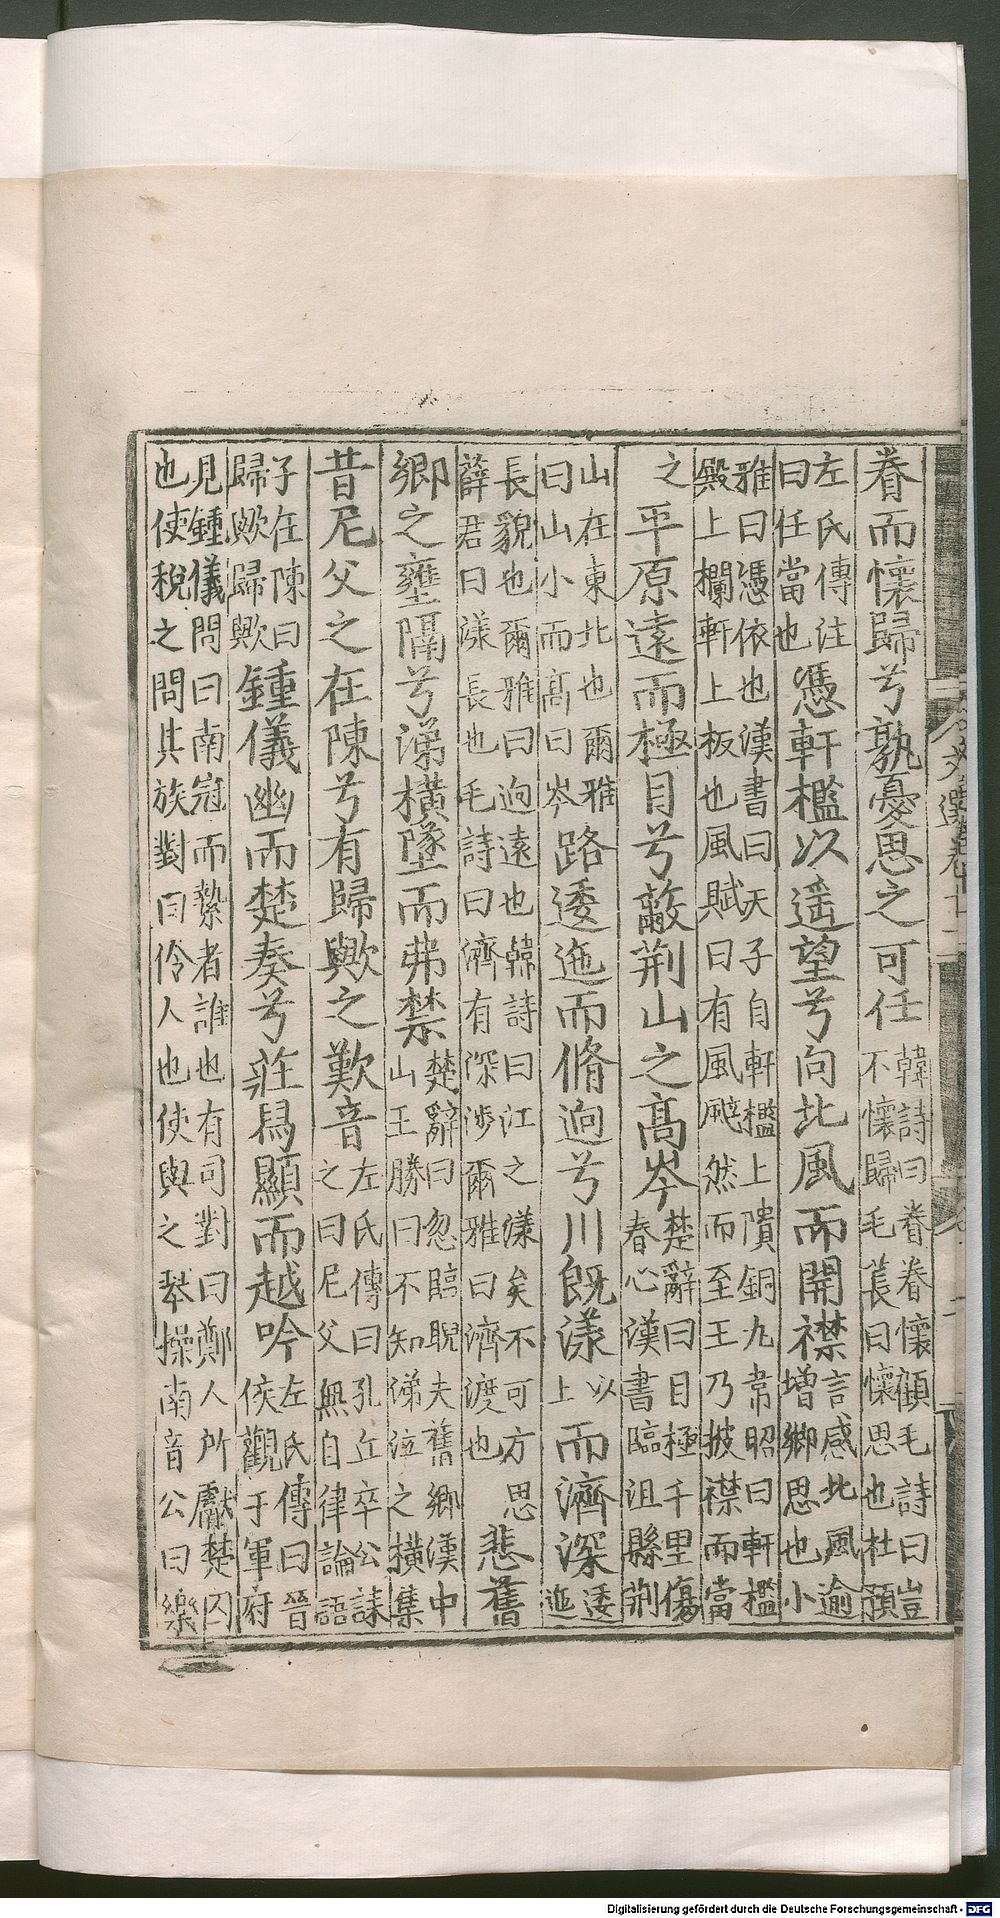 文選卷十一
眷而懷歸兮孰憂思之可任韓詩曰眷眷懷顧毛詩曰豈不懷歸毛萇曰懷思也杜預
左氏傳注曰任當也憑軒檻以遥望兮向北風而開襟言感北風逾增鄉思也小
雅曰憑依也漢書曰天子自軒檻上隤銅丸韋昭曰軒檻殿上欄軒上板也風賦曰有風颯然而至王乃披襟而當
之平原遠而極目兮蔽荆山之高岑楚辭曰目極千里傷春心漢書臨沮縣荆
山在東北也爾雅曰山小而高曰岑路逶迤而脩迥兮川既漾以上而濟深逶迤
長貌也爾雅曰迥遠也韓詩曰江之漾矣不可方思薛君曰漾長也毛詩曰濟有深涉爾雅曰濟渡也悲舊
鄉之壅隔兮涕橫墜而弗禁楚辭曰忽臨睨夫舊鄉漢中山王勝曰不知涕泣之横集
昔尼父之在陳兮有歸歟之歎音左氏傳曰孔丘卒公誄之曰尼父無自律論語
子在陳曰歸歟歸歟鍾儀幽而楚奏兮莊舄顯而越吟左氏傳曰晉侯觀于軍府
見鍾儀問曰南冠而縶者誰也有司對曰鄭人所獻楚囚也使稅之問其族對曰伶人也使與之琴操南音公曰樂
Digitalisierung gefördert durch die Deutsche Forschungsgemeinschaft - DFG